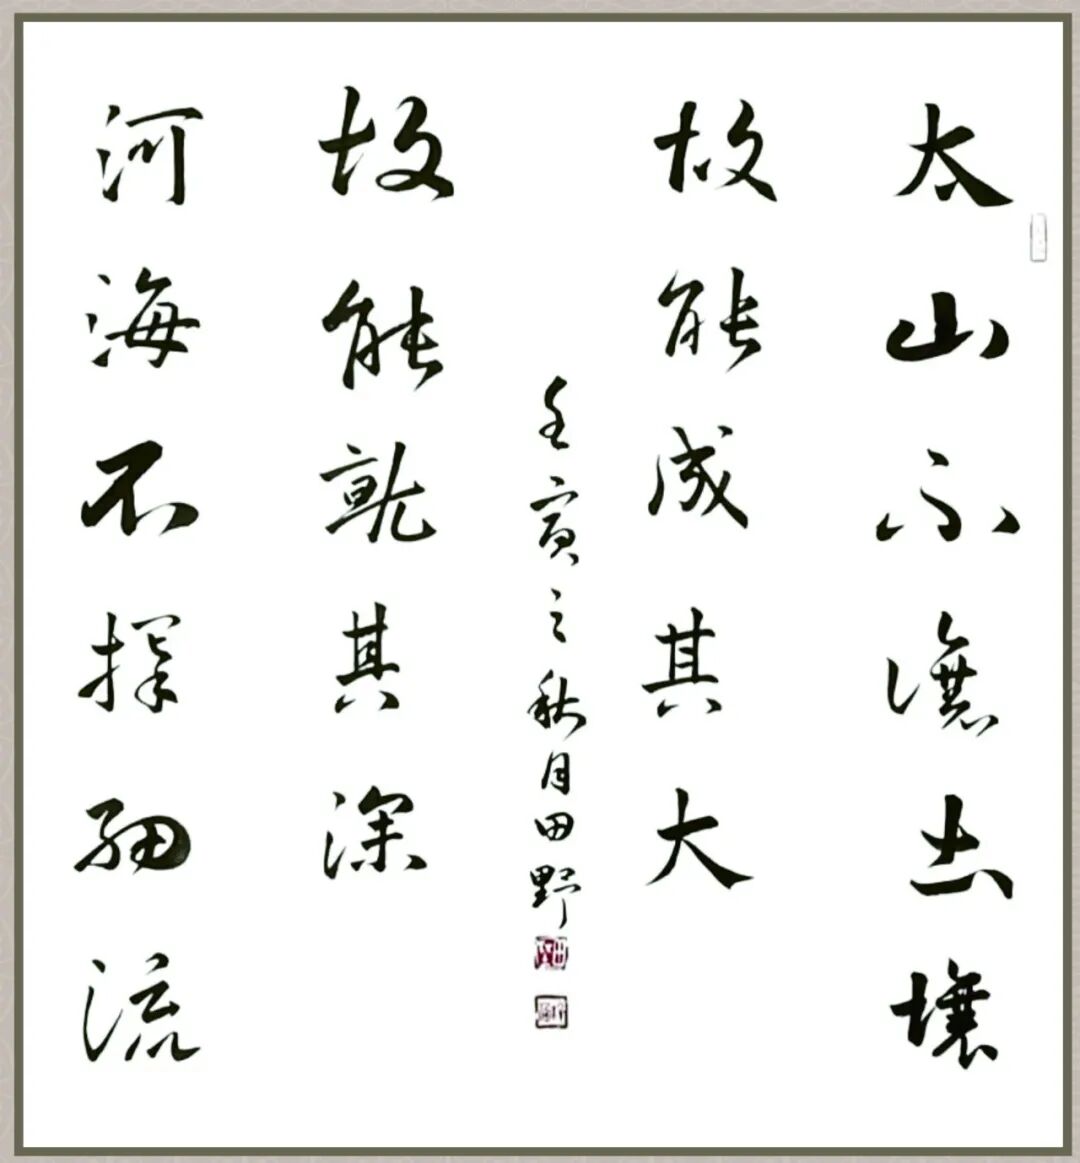 太山不讓土壤
故能成其大
河海不擇細流
故能就其深
壬寅之秋月田野